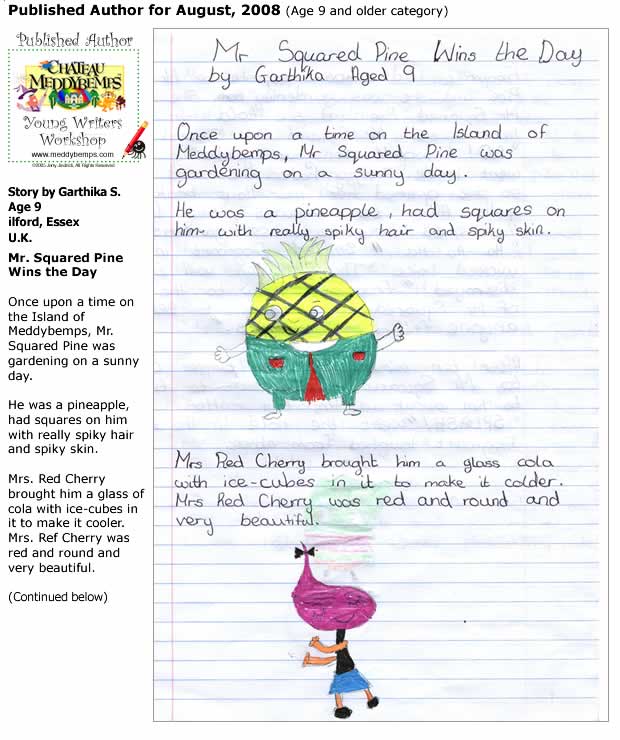 Published Author for August, 2008 (Age 9 and older category)
Published Author
CHATEAU
MEDDYBEMPS
Young Writers
Workshop
www.meddybemps.com
Story by Garthika S.
Age 9
ilford, Essex
U.K.
Mr. Squared Pine
Wins the Day
Once upon a time on
the Island of
Meddybemps, Mr.
Squared Pine was
gardening on a sunny
day.
He was a pineapple,
had squares on him
with really spiky hair
and spiky skin.
Mrs. Red Cherry
brought him a glass of
cola with ice-cubes in
it to make it cooler.
Mrs. Ref Cherry was
red and round and
very beautiful.
(Continued below)
Mr Squared Pine Wins the Day
by Garthika Aged 9
Once upon a time on the Island of
Meddybemps, Mr Squared Pine was
gardening on a sunny day.
He was a pineapple, had squares on
him with really spiky hair and spiky skin.
Mrs Red Cherry brought him a glass cola
with ice-cubes in it to make it colder.
Mrs Red Cherry was red and round and
very beautiful.